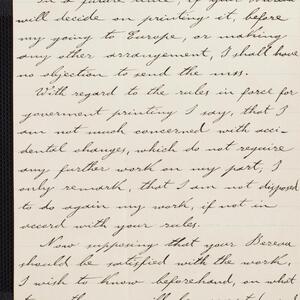 In a future time, if your Bureau
will decide on printing it, before
my going to Europe, or making
any other arrangement, I shall have
no objection to send the mss.
With regard to the rules in force for
goverment printing I say, that I
am not much concerned with acci-
dental changes, which do not require
any further work on my part; I
only remark, that I am not disposed
to do again my work, if not in
accord with your rules.
Now supposing that your Bereau
should be satisfied with the work,
I wish to know beforehand, on what